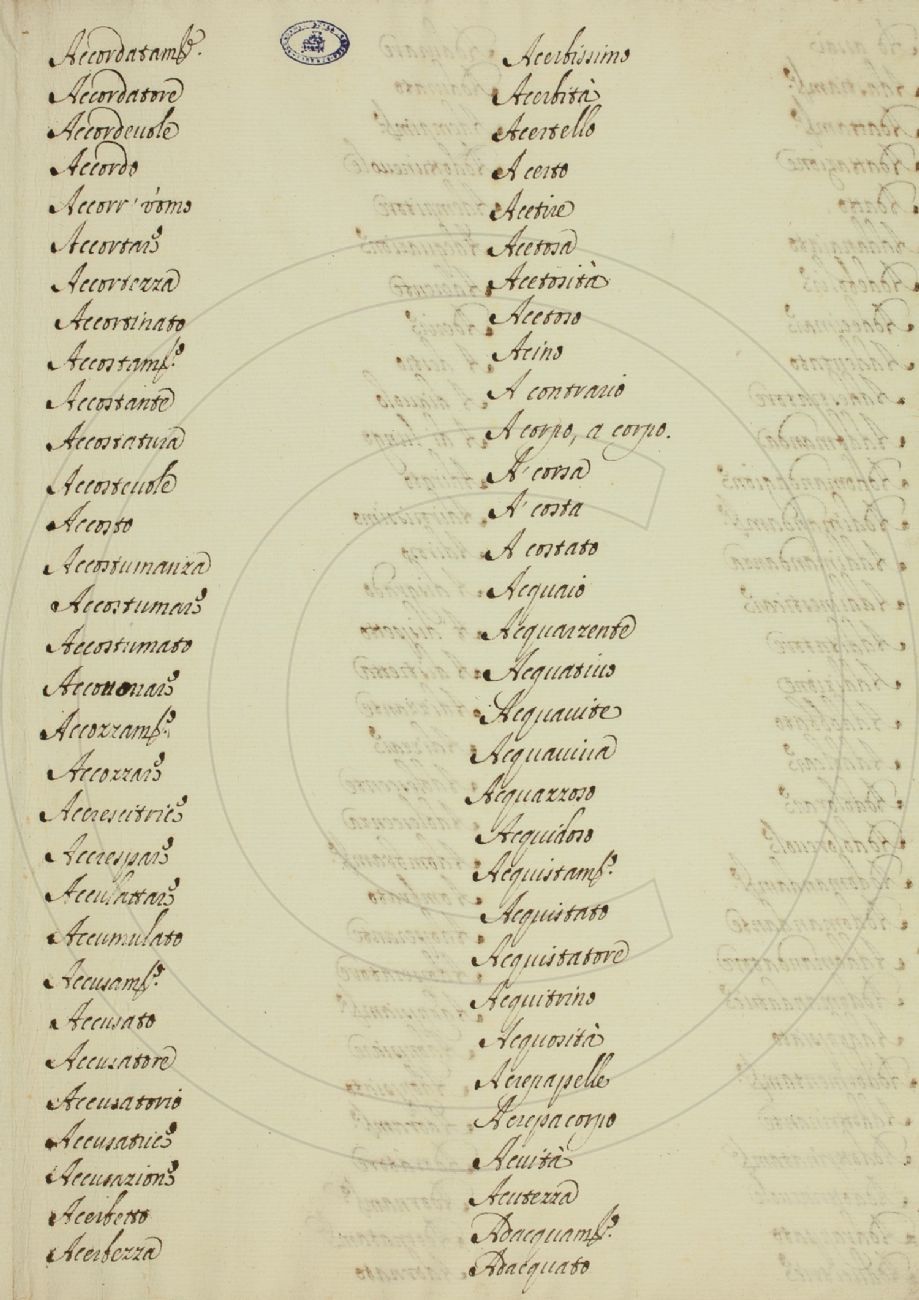 Accordatam.^te
Accordatore
Accordeuole
Accordo
Accorr' uomo
Accortare
Accortezza
Accortinato
Accostam.^to
Accostante
Accostatura
Accosteuole
Accosto
Accostumanza
Accostumare
Accostumato
Accouonare
Accozzam.^to
Accozzare
Accrescitrice
Accrespare
Acculattare
Accumulato
Accusam.^to
Accusato
Accusatore
Accusatorio
Accusatrice
Accusazione
Acerbetto
Acerbezza
Acerbissimo
Acerbità
Acertello
Acerto
Acetire
Acetosa
Acetosità
Acetoso
Acino
A contrario
A corpo, a corpo.
A' corsa
A' costa
A costato
Acquaio
Acquarzente
Acquatiuo
Acquauite
Acquauiua
Acquazzoso
Acquidoso
Acquistam.^to
Acquistato
Acquistatore
Acquitrino
Acquosità
Acrepapelle
Acrepacorpo
Acuità
Acutezza
Adacquam.^to
Adacquato